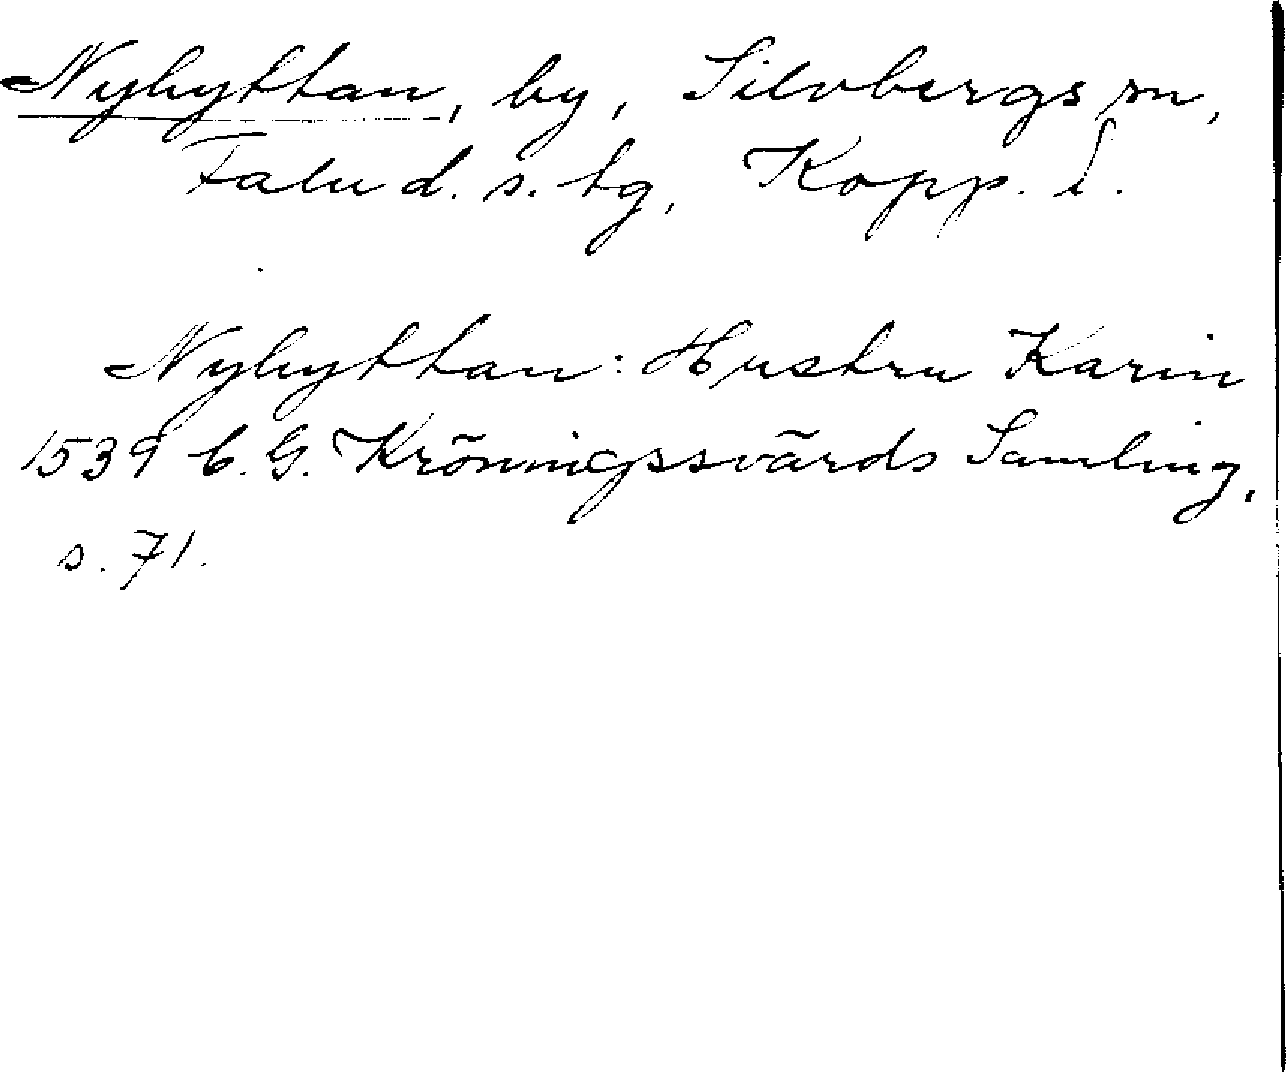 Nyhyttan, by, Silvbergs sn,
Falu d. s. tg, Kopp. l.
Nyhyttan: Hustru Karin
1539 C. G. Kröningssvärds Samling,
s. 71.